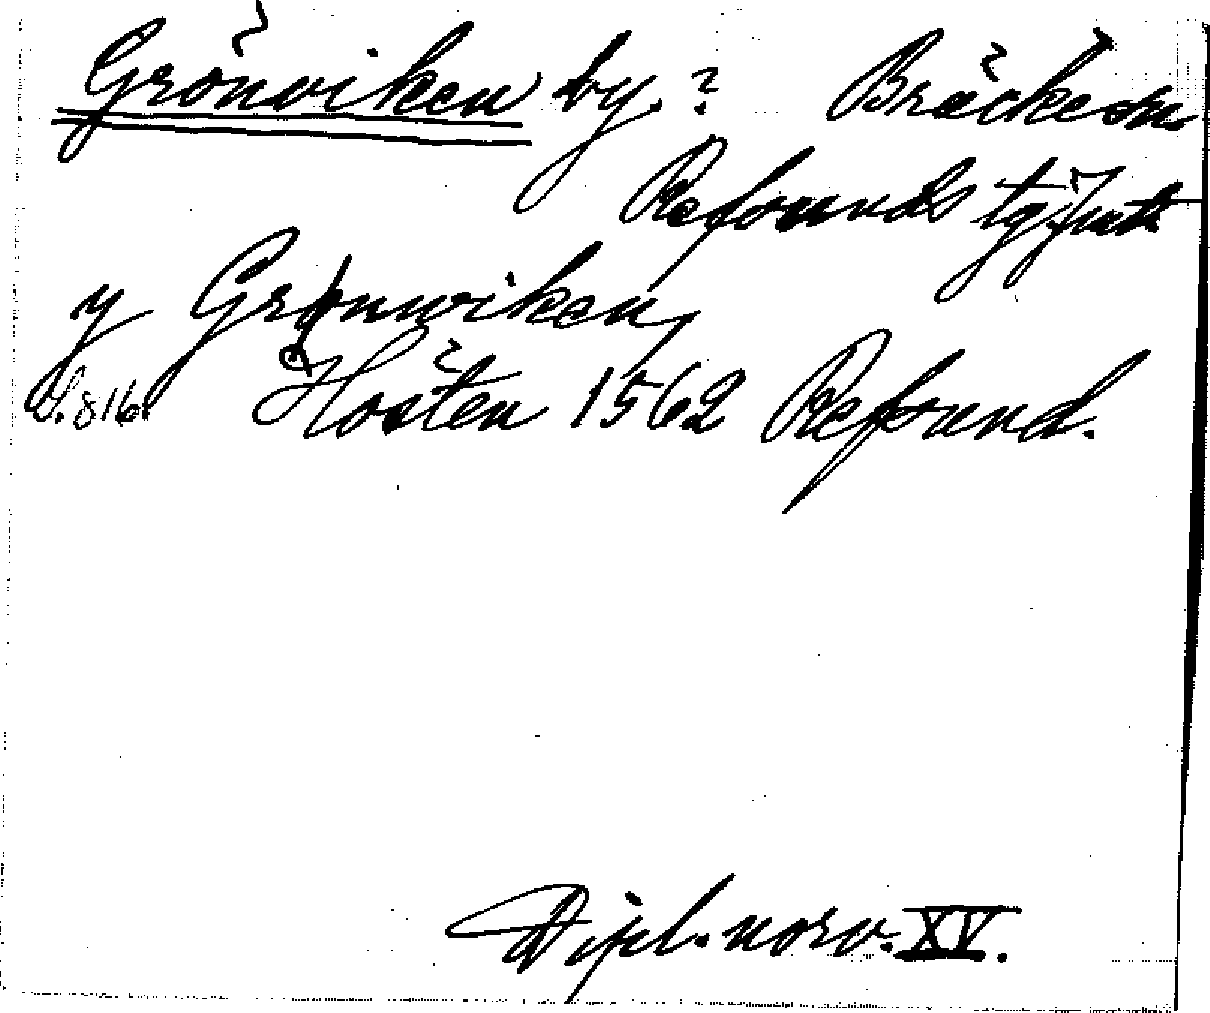 Grönviken by. ? Bräcke sn.
Refsunds tg. Jmtl.
y Grønwiken,
S. 816. Hösten 1562 Refsund.
Dipl. norv. XV.